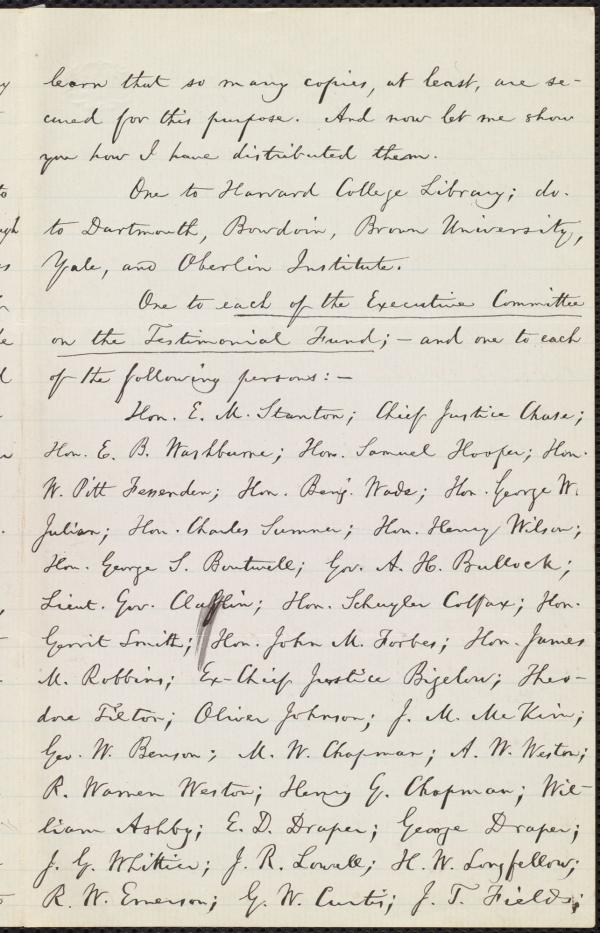 learn that so many copies, at least, are se-
cured for this purpose. And now let me show
you how I have distributed them.
One to Harvard College Library; do.
to Dartmouth, Bowdoin, Brown University,
Yale, and Oberlin Institute.
One to each of the Executive Committee
on the Testimonial Fund; — and one to each
of the following persons: —
Hon. E. M. Stanton; Chief Justice Chase;
Hon. E. B. Washburne; Hon. Samuel Hooper; Hon.
W. Pitt Fessenden; Hon. Benj. Wade; Hon. George W.
Julian; Hon. Charles Sumner; Hon. Henry Wilson;
Hon. George S. Boutwell; Gov. A. H. Bullock;
Lieut. Gov. Claflin; Hon. Schuyler Colfax; Hon.
Gerrit Smith; Hon. John M. Forbes; Hon. James
M. Robbins; Ex-Chief Justice Bigelow; Theo-
dore Tilton; Oliver Johnson; J. M. McKim;
Geo. W. Benson; M. W. Chapman; A. W. Weston;
R. Warren Weston; Henry G. Chapman; Wil-
liam Ashby; E. D. Draper; George Draper;
J. G. Whittier; J. R. Lowell; H. W. Longfellow;
R. W. Emerson; G. W. Curtis; J. T. Fields;